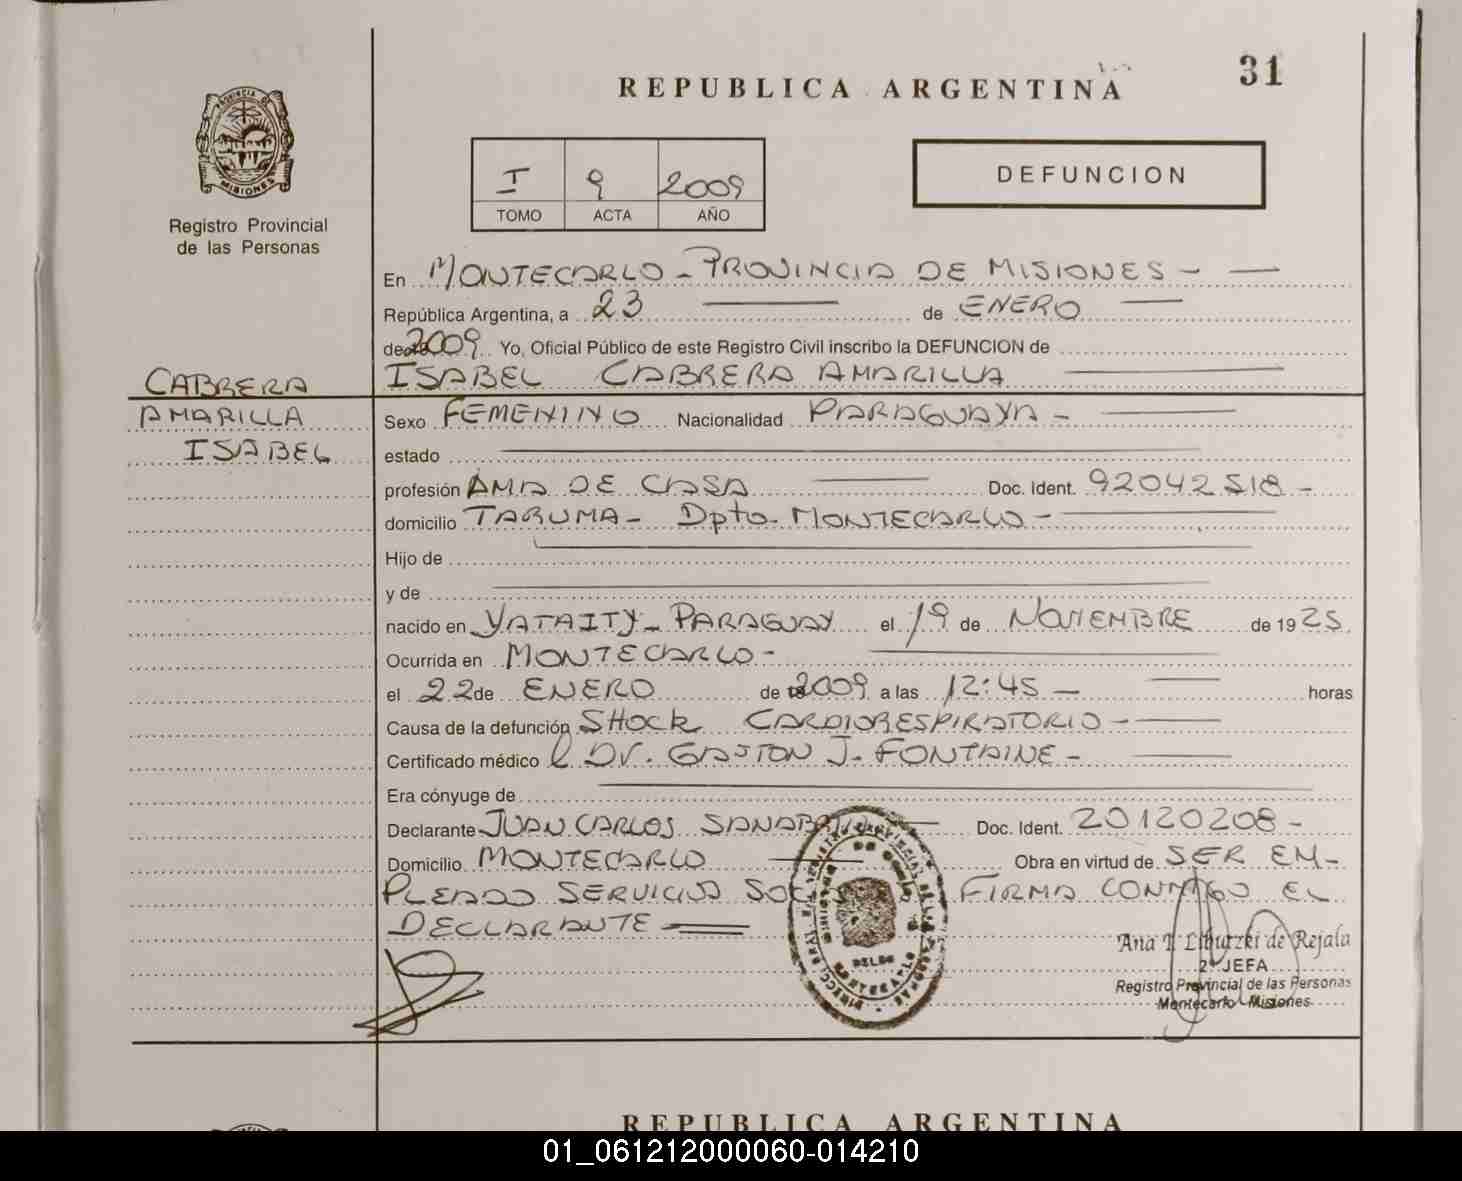 31
REPUBLICA ARGENTINA
PROVINCIA DE
MISIONES
Registro Provincial
de las Personas
I 9 2009
TOMO ACTA AÑO
DEFUNCION
En MONTECARLO - PROVINCIA DE MISIONES -
República Argentina, a 23 de ENERO
de 2009 Yo, Oficial Público de este Registro Civil inscribo la DEFUNCION de
ISABEL CABRERA AMARILLA
CABRERA
AMARILLA
ISABEL
Sexo FEMENINO Nacionalidad PARAGUAYA -
estado
profesión AMA DE CASA Doc. Ident. 92042518 -
domicilio TARUMA - Dpto. MONTECARLO -
Hijo de
y de
nacido en YATAITY - PARAGUAY el 19 de NOVIEMBRE de 1925
Ocurrida en MONTECARLO -
el 22 de ENERO de 2009 a las 12:45 - horas
Causa de la defunción SHOCK CARDIORESPIRATORIO -
Certificado médico DR. GASTON J. FONTAINE -
Era cónyuge de
Declarante JUAN CARLOS Doc. Ident. 20120208 -
Domicilio MONTECARLO Obra en virtud de SER EM-
PLEADO SERVICIO SOC FIRMA CONMIGO EL
DECLARANTE
Ana de Rejala
2ª JEFA
Registro Provincial de las Personas
Montecarlo Misiones
REPUBLICA ARGENTINA
01_061212000060-014210